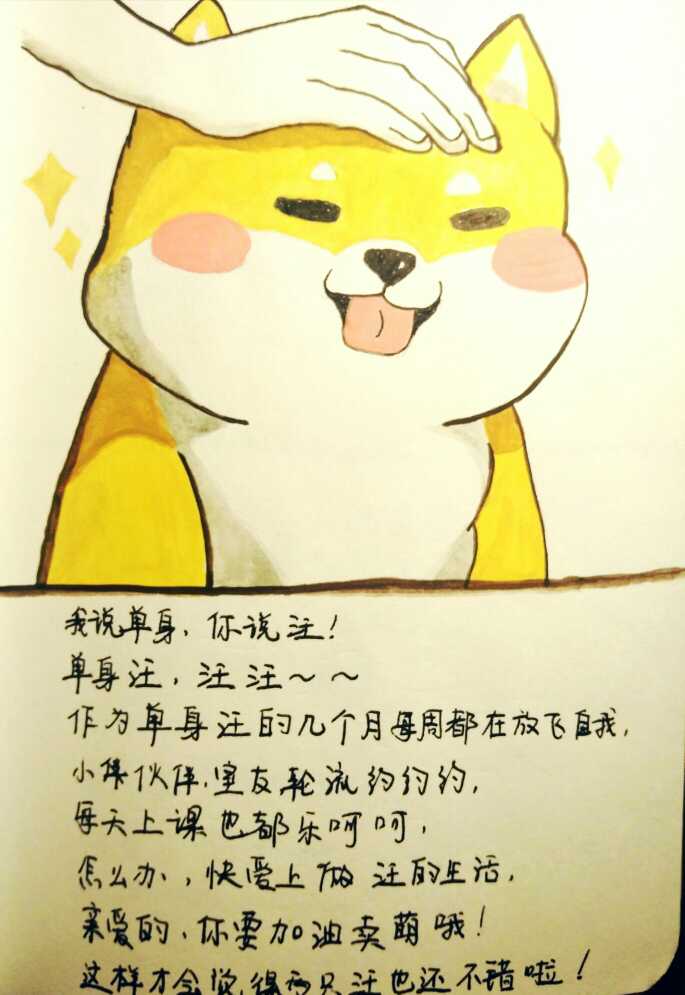 我说单身，你说汪！
单身汪，汪汪～～
作为单身汪的几个月每周都在放飞自我，
小伴伙伴，室友轮流约约约，
每天上课也都乐呵呵，
怎么办，快爱上做汪的生活，
亲爱的，你要加油卖萌哦！
这样才会觉得两只汪也还不错啦！